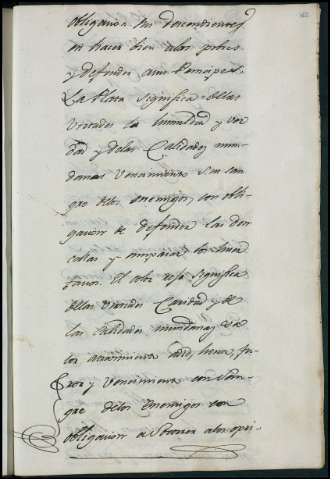 obligacion sin descontiones
en hacer bien a los pobres
y defender a sus Principes.
La Plata significa de las
Virtudes la humildad y ver
dad y de las Calidades mun
danas Vencimiento sin san
gre de los enemigos, con obli-
gacion de defender las don
cellas y amparar los huer
fanos. El color rojo significa
de las virtudes Caridad y de
las calidades mundanas va
lor atrevimiento ardid, honor, fu-
ror y vencimiento con San-
gre de los Enemigos con
obligacion a socorrer a los opri-